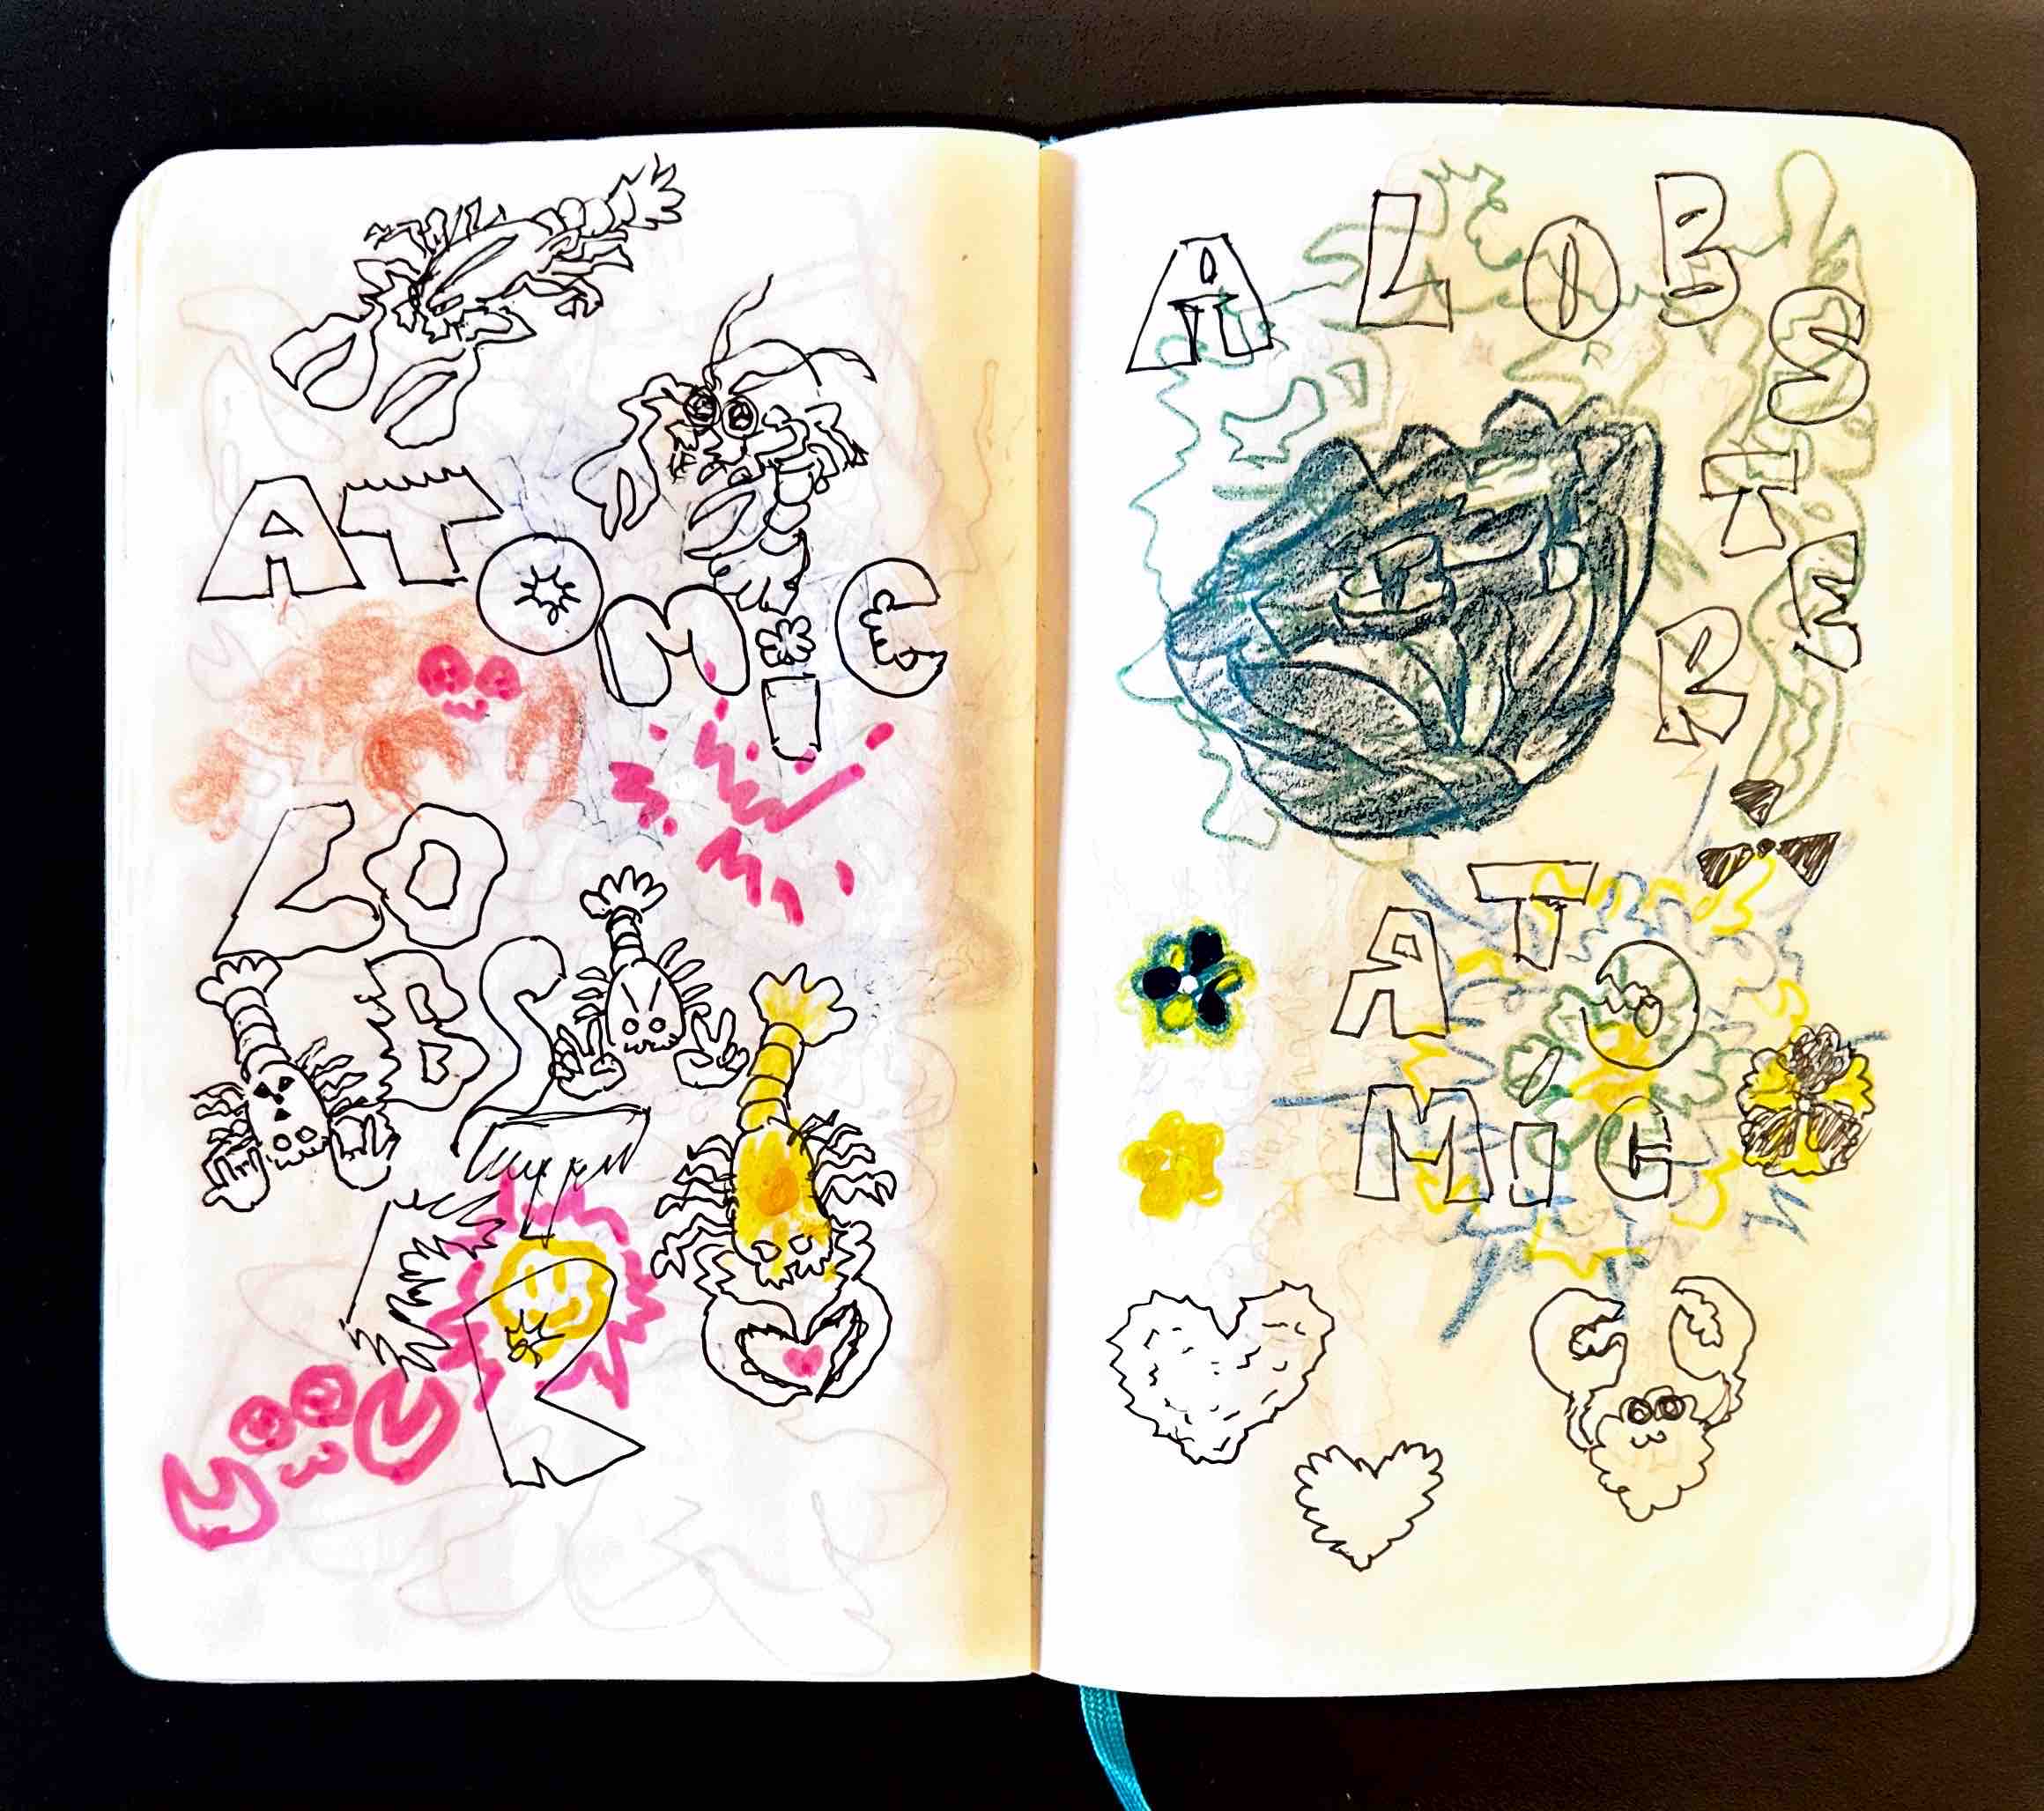 ATOMIC
LO
BS
TER
A LOBSTER
ATO
MIC